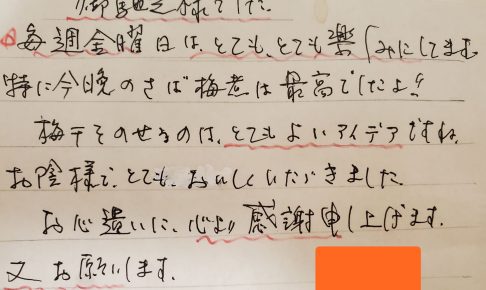 御馳走様でした。
毎週金曜日は、とても、とても楽しみにしてます。
特に今晩のさば梅煮は最高でしたよ!!
梅干そのせるのは、とてもよいアイデアですね。
お陰様で、とても、おいしくいただきました。
お心遣いに、心より感謝申し上げます。
又お願いします。